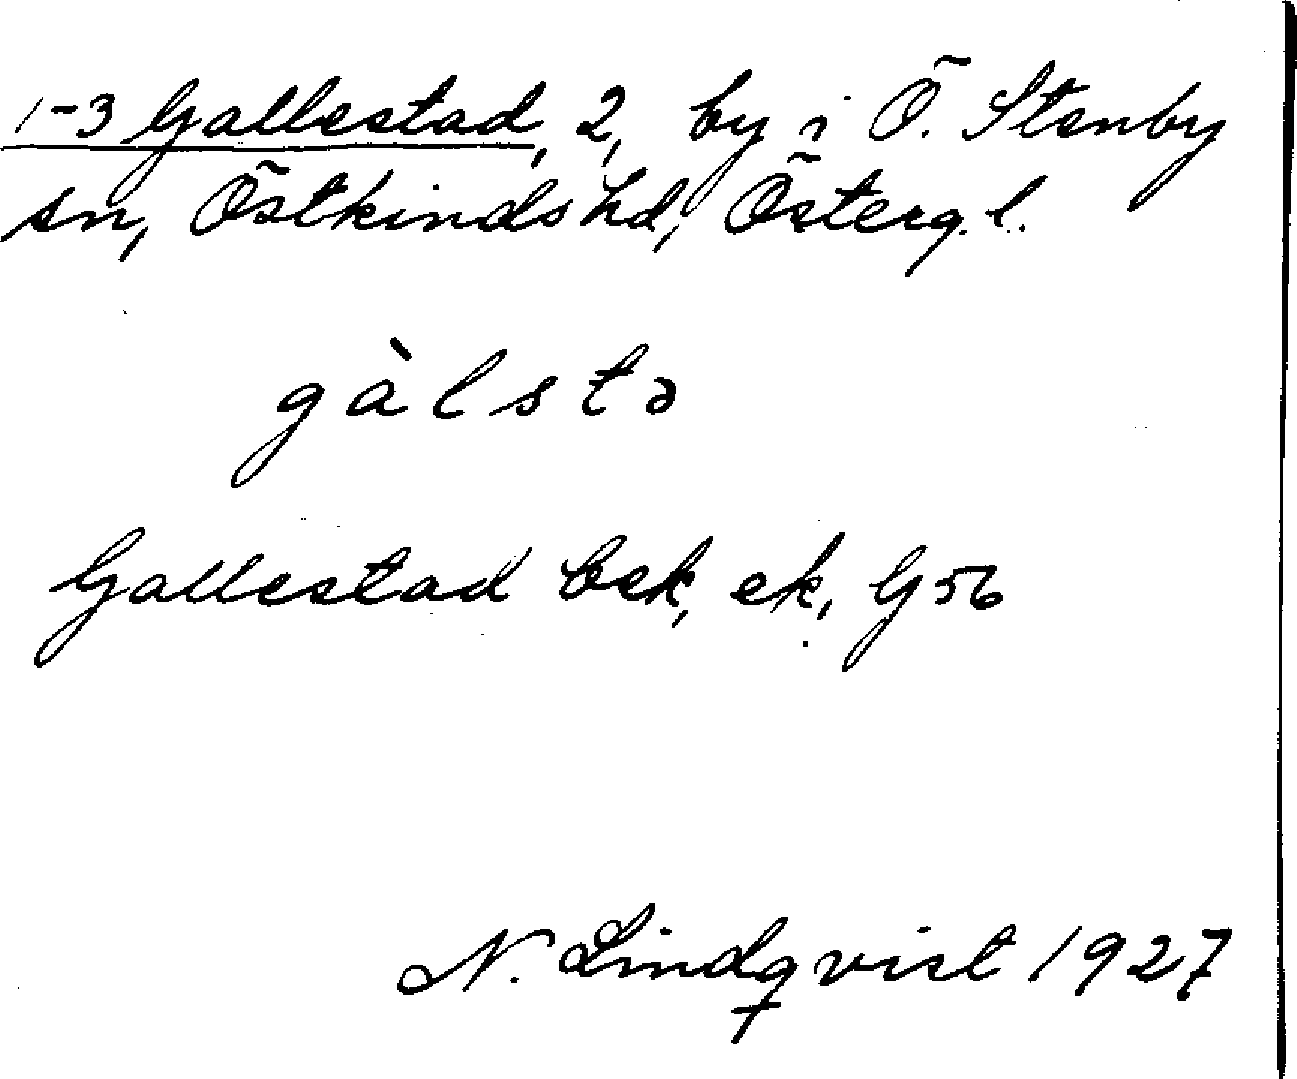 1-3 Gallestad, 2, by i Ö. Stenby
sn, Östkinds hd, Österg.l.
gàlstə
Gallestad bek, ek, G56
N. Lindqvist 1927